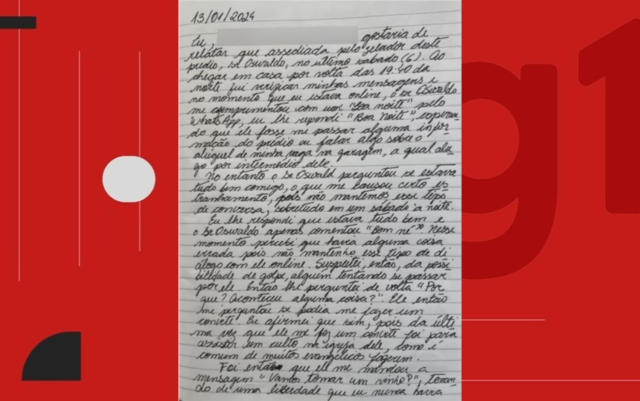 13/01/2024
Eu, gostaria de
relatar que assediada pelo zelador deste
prédio, Sr Oswaldo, no último sábado (6). Ao
chegar em casa por volta das 19:40 da
noite fui verificar minhas mensagens e
no momento que eu estava online, o Sr Oswaldo
me cumprimentou com um "Boa noite" pelo
WhatsApp, eu lhe respondi "Boa Noite", esperan-
do que ele fosse me passar alguma infor-
mação do prédio ou falar algo sobre o
aluguel de minha vaga na garagem, a qual alu-
go por intermédio dele.
No entanto o Sr Oswald perguntou se estava
tudo bem comigo, o que me causou certo es-
tranhamento, pois não mantemos esse tipo
de conversa, sobretudo em um sábado à noite.
Eu lhe respondi que estava tudo bem e
o Sr Oswaldo apenas comentou "Bom né" Nesse
momento percebi que havia alguma coisa
errada pois não mantinha esse tipo de di
álogo com ele online. Suspeitei, então, da possi
bilidade de golpe, alguém tentando se passar
por ele. Então lhe perguntei de volta "Por
que? Aconteceu alguma coisa?" Ele então
me perguntou se podia me fazer um
convite. Eu afirmei que sim, pois da últi
ma vez que ele me fez um convite foi para
assistir um culto na igreja dele, como é
comum de muitos evangélicos fazerem.
Foi então que ele me mandou a
mensagem "Vamos tomar um vinho?", toman-
do de uma liberdade que eu nunca havia
g1